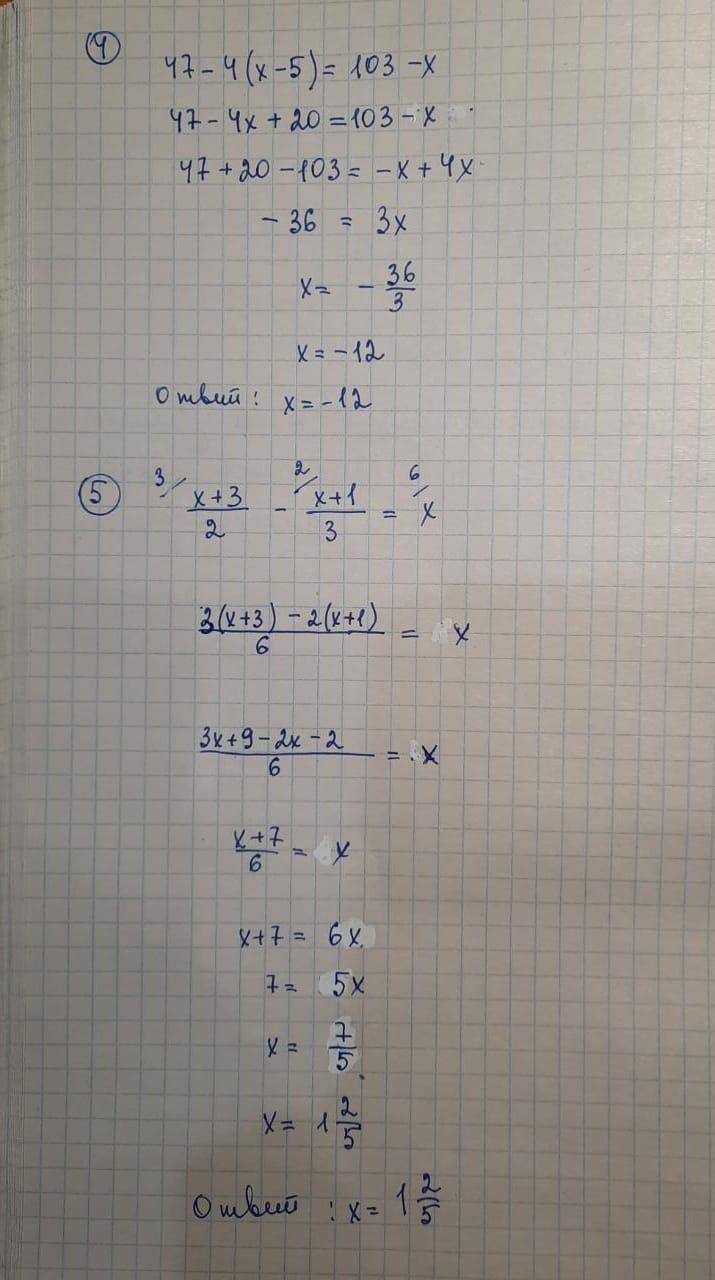 4
47 - 4(x - 5) = 103 - x
47 - 4x + 20 = 103 - x
47 + 20 - 103 = -x + 4x
- 36 = 3x
x = - 36/3
x = -12
Ответ: x = -12
5
3/ 2/ 6/
(x+3)/2 - (x+1)/3 = x
(3(x+3) - 2(x+1))/6 = x
(3x+9-2x-2)/6 = x
(x+7)/6 = x
x+7 = 6x
7 = 5x
x = 7/5
x = 1 2/5
Ответ : x = 1 2/5